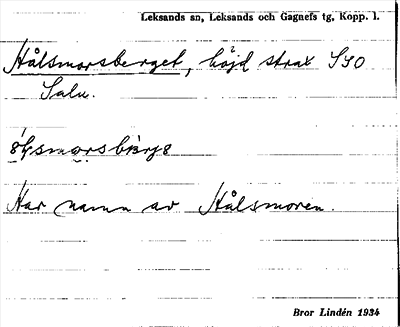 Leksands sn, Leksands och Gagnefs tg, Kopp. l.
Hålsmorsberget, höjd strax SSO
Salu.
Har namn av Hålsmoren.
Bror Lindén 1934